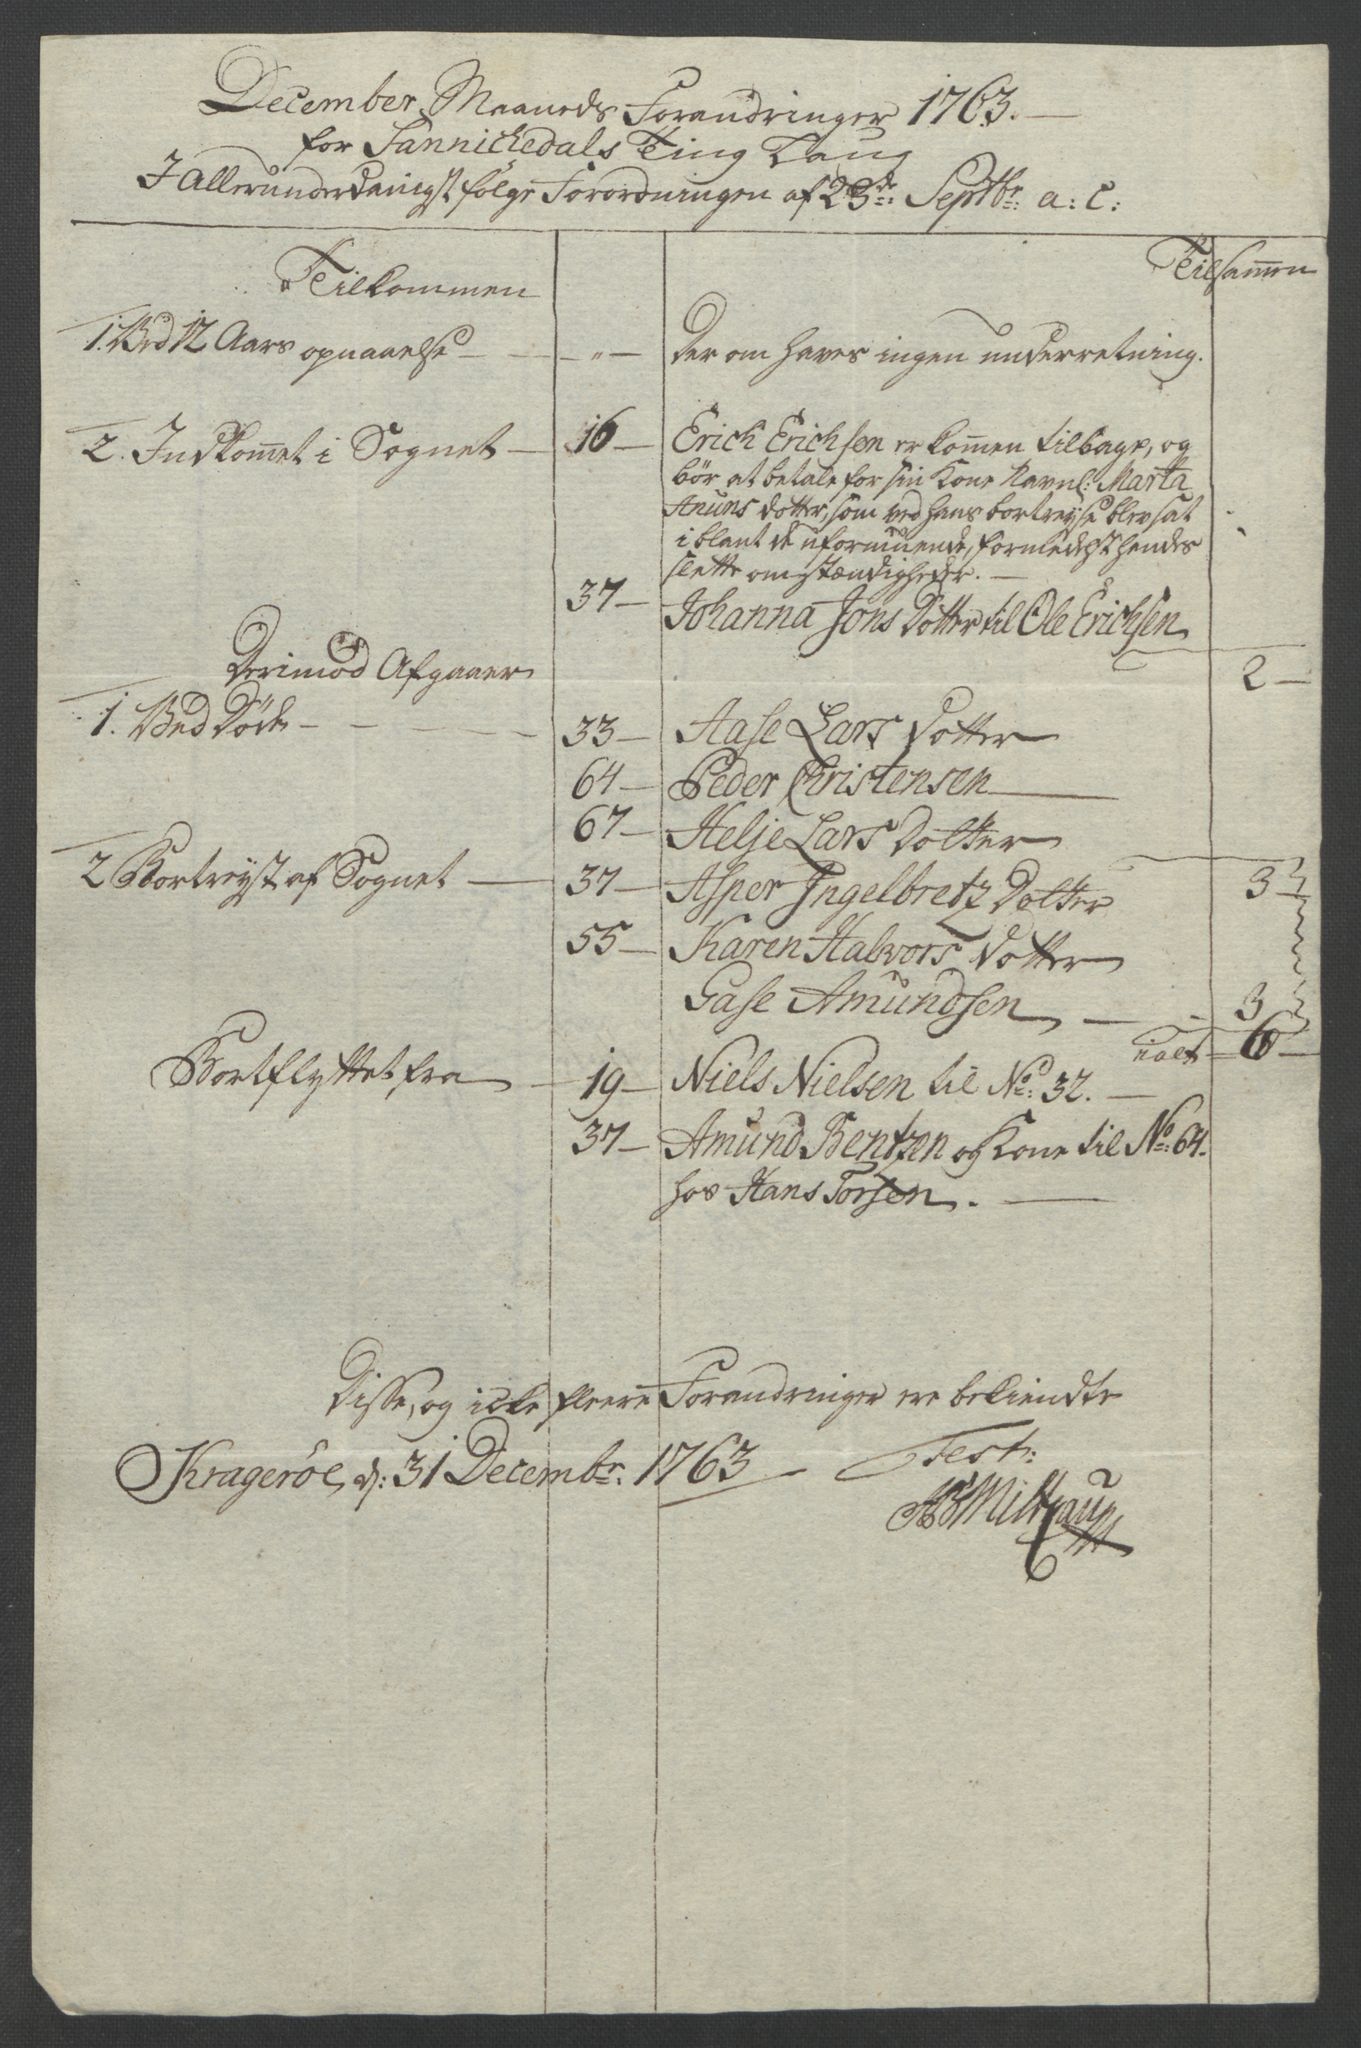 December Maaneds Forandringer 1763.
for Sannichedals Ting Laug
I Allerunderdanigst følge Forordningen af 23de: Septbr: a: c:
Tilkommen
Tilsamen
1. Ved 12 Aars opnaaelse - - - " - Der om haves ingen underretning.
2. Indkomet i Sognet - 16 - Erich Erichsen er komen tilbage, og
bör at betale for sin Kone Navnl: Marta
Anuns dotter, som ved hans bortreyse blev sat
iblant de uformuende, formedelst hendes
slette omstændigheder. -
37 - Johanna Jons Dotter til Ole Erichsen
2 -
Derimod Afgaaer
1. Ved Död - - - 33 - Aase Lars Dotter
64 - Peder Christensen
67 - Helje Lars Dotter
3 -
2 Bortreyst af Sognet - 37 - Asper Ingelbretz Dotter
55 - Karen Halvors Dotter
Gase Amundsen - - 3
ialt - 6 -
Bortflyttet fra - 19 - Niels Nielsen til No: 32. -
37 - Amund Bentzen og Kone til No: 64.
hos Hans Torsen. -
Disse, og icke fleere Forandringer ere bekiendte
Kragerøe, d: 31 Decembr: 1763 - Test: